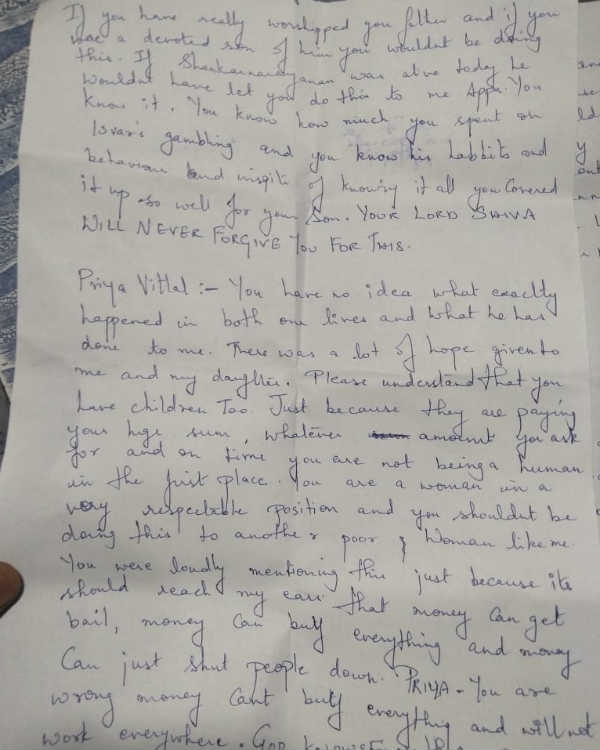 If you have really worshipped you father and if you
was a devoted son of him you wouldnt be doing
this. If Shankarnarayanan was alive today he
wouldnt have let you do this to me Appa. You
know it. You know how much you spent on
Isvar's gambling and you know his habbits and
behaviour and inspite of knowing it all you Covered
it up so well for your Son. YOUR LORD SHIVA
WILL NEVER FORGIVE YOU FOR THIS.
Priya Vittal :- You have no idea what exactly
happened in both our lives and what he has
done to me. There was a lot of hope given to
me and my daughter. Please understand that you
have children Too. Just because they are paying
your huge sum, whatever amount you ask
for and on time you are not being a human
in the first place. You are a woman in a
very respectable position and you shouldnt be
doing this to another poor Woman like me.
You were loudly mentioning this just because its
should reach my ears that money can get
bail, money can buy everything and money
Can just shut people down. PRIYA - You are
wrong money Cant buy everything and will not
work everywhere. GOD KNOWS